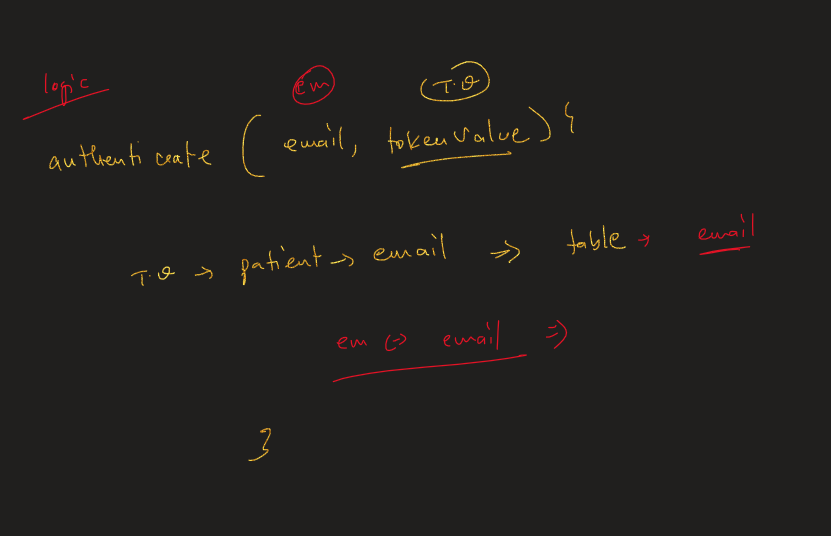 logic
em T.V
authenticate (email, tokenValue) {
T.V → patient → email ⇒ table → email
em <-> email ⇒
}